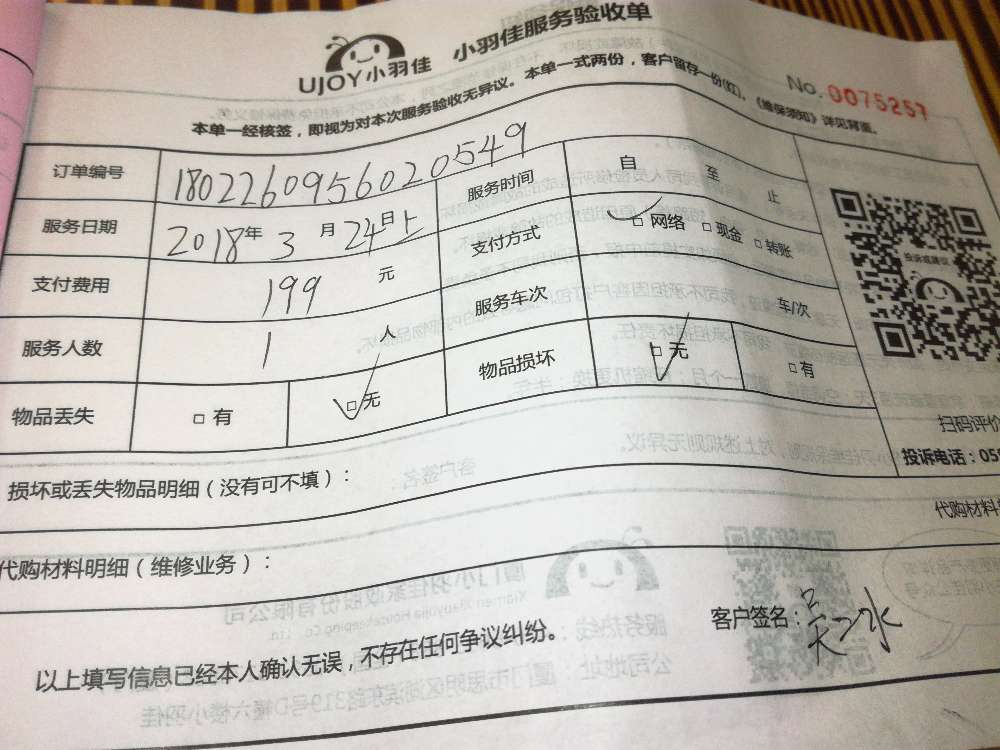 UJOY小羽佳 小羽佳服务验收单
No. 0075257
本单一经核签，即视为对本次服务验收无异议。本单一式两份，客户留存一份(红)。《维保须知》详见背面。
订单编号 1802260956020549 服务时间 自 至 止
服务日期 2018年 3月 24日上 支付方式 □网络 □现金 □转账
支付费用 199 元 服务车次 车/次
服务人数 1 人 物品损坏 □无 □有
物品丢失 □有 □无
投诉或建议
扫码评价
投诉电话：059
损坏或丢失物品明细（没有可不填）：
代购材料
代购材料明细（维修业务）：
以上填写信息已经本人确认无误，不存在任何争议纠纷。
客户签名：吴 水